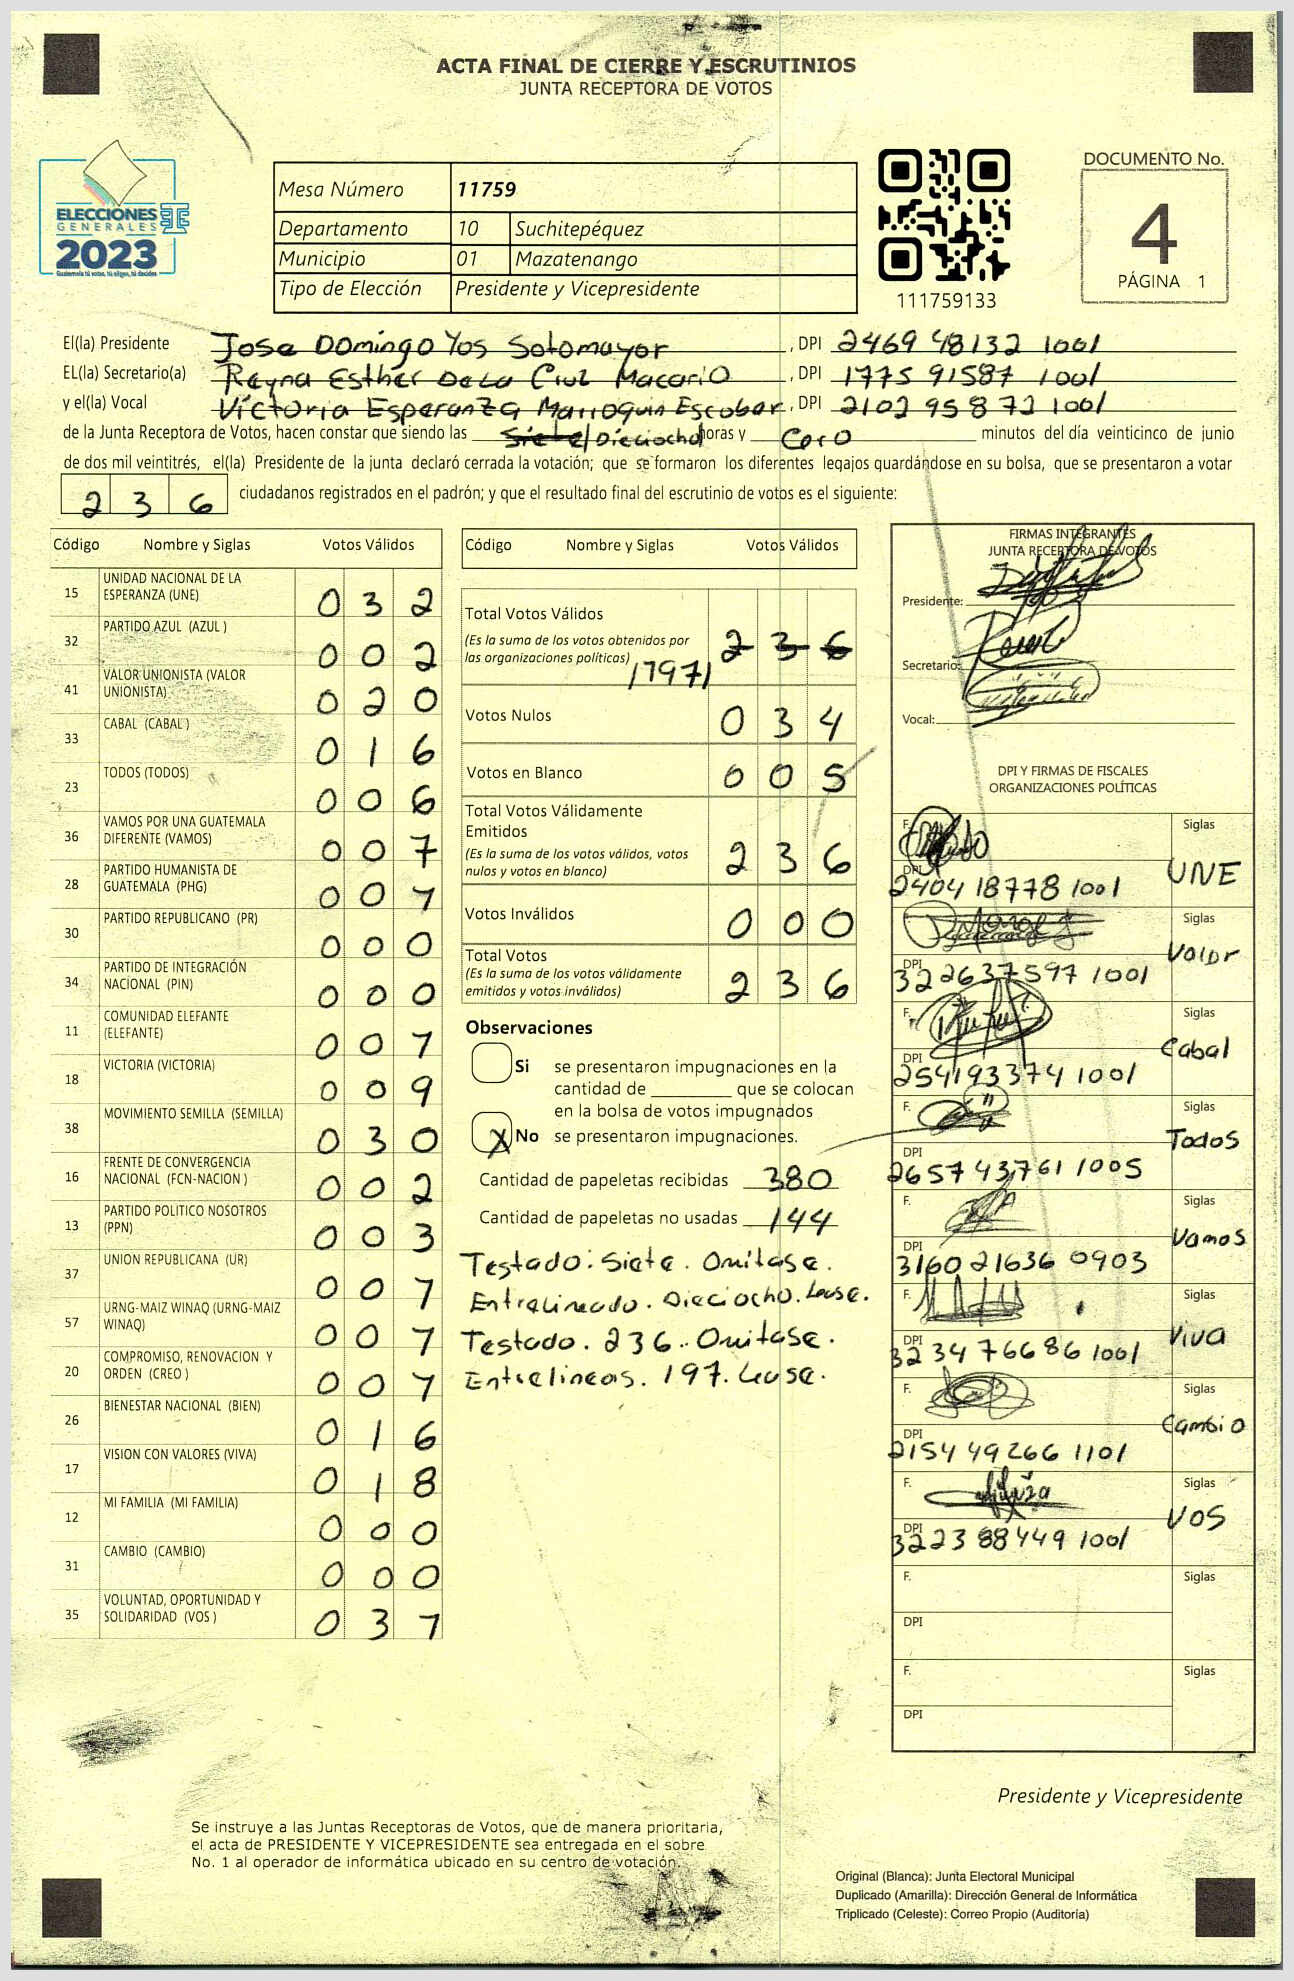 ACTA FINAL DE CIERRE Y ESCRUTINIOS
JUNTA RECEPTORA DE VOTOS
ELECCIONES
GENERALES
2023
Guatemala tú votas, tú eliges, tú decides
Mesa Número 11759
Departamento 10 Suchitepéquez
Municipio 01 Mazatenango
Tipo de Elección Presidente y Vicepresidente
111759133
DOCUMENTO No.
4
PÁGINA 1
El(la) Presidente Jose Domingo Yos Sotomayor, DPI 2469 48132 1001
EL(la) Secretario(a) Reyna Esther De La Cruz Macario, DPI 1775 91587 1001
y el(la) Vocal Victoria Esperanza Marroquin Escobar, DPI 2102 95872 1001
de la Junta Receptora de Votos, hacen constar que siendo las Siete/Dieciocho horas y Cero minutos del día veinticinco de junio
de dos mil veintitrés, el(la) Presidente de la junta declaró cerrada la votación; que se formaron los diferentes legajos guardándose en su bolsa, que se presentaron a votar
2 3 6 ciudadanos registrados en el padrón; y que el resultado final del escrutinio de votos es el siguiente:
Código Nombre y Siglas Votos Válidos
15 UNIDAD NACIONAL DE LA ESPERANZA (UNE) 0 3 2
32 PARTIDO AZUL (AZUL ) 0 0 2
41 VALOR UNIONISTA (VALOR UNIONISTA) 0 2 0
33 CABAL (CABAL ) 0 1 6
23 TODOS (TODOS) 0 0 6
36 VAMOS POR UNA GUATEMALA DIFERENTE (VAMOS) 0 0 7
28 PARTIDO HUMANISTA DE GUATEMALA (PHG) 0 0 7
30 PARTIDO REPUBLICANO (PR) 0 0 0
34 PARTIDO DE INTEGRACIÓN NACIONAL (PIN) 0 0 0
11 COMUNIDAD ELEFANTE (ELEFANTE) 0 0 7
18 VICTORIA (VICTORIA) 0 0 9
38 MOVIMIENTO SEMILLA (SEMILLA) 0 3 0
16 FRENTE DE CONVERGENCIA NACIONAL (FCN-NACION ) 0 0 2
13 PARTIDO POLITICO NOSOTROS (PPN) 0 0 3
37 UNION REPUBLICANA (UR) 0 0 7
57 URNG-MAIZ WINAQ (URNG-MAIZ WINAQ) 0 0 7
20 COMPROMISO, RENOVACION Y ORDEN (CREO ) 0 0 7
26 BIENESTAR NACIONAL (BIEN) 0 1 6
17 VISION CON VALORES (VIVA) 0 1 8
12 MI FAMILIA (MI FAMILIA) 0 0 0
31 CAMBIO (CAMBIO) 0 0 0
35 VOLUNTAD, OPORTUNIDAD Y SOLIDARIDAD (VOS ) 0 3 7
Código Nombre y Siglas Votos Válidos
Total Votos Válidos 2 3 6
(Es la suma de los votos obtenidos por
las organizaciones políticas) /197/
Votos Nulos 0 3 4
Votos en Blanco 0 0 5
Total Votos Válidamente
Emitidos
(Es la suma de los votos válidos, votos
nulos y votos en blanco) 2 3 6
Votos Inválidos 0 0 0
Total Votos
(Es la suma de los votos válidamente
emitidos y votos inválidos) 2 3 6
Observaciones
Si se presentaron impugnaciones en la
cantidad de ________ que se colocan
en la bolsa de votos impugnados
X No se presentaron impugnaciones.
Cantidad de papeletas recibidas 380
Cantidad de papeletas no usadas 144
Testado: Siete. Omitase.
Entrelineado. Dieciocho. Lease.
Testado. 236. Omitase.
Entrelineas. 197. Lease.
FIRMAS INTEGRANTES
JUNTA RECEPTORA DE VOTOS
Presidente:
Secretario:
Vocal:
DPI Y FIRMAS DE FISCALES
ORGANIZACIONES POLÍTICAS
F. Siglas UNE
DPI 2404 18778 1001
F. Siglas Valor
DPI 3226 37597 1001
F. Siglas Cabal
DPI 2541 93374 1001
F. Siglas Todos
DPI 2657 43761 1005
F. Siglas Vamos
DPI 3160 21636 0903
F. Siglas Viva
DPI 3234 76686 1001
F. Siglas Cambio
DPI 2154 49266 1101
F. Siglas VOS
DPI 3223 88449 1001
F. Siglas
DPI
F. Siglas
DPI
Presidente y Vicepresidente
Se instruye a las Juntas Receptoras de Votos, que de manera prioritaria,
el acta de PRESIDENTE Y VICEPRESIDENTE sea entregada en el sobre
No. 1 al operador de informática ubicado en su centro de votación.
Original (Blanca): Junta Electoral Municipal
Duplicado (Amarilla): Dirección General de Informática
Triplicado (Celeste): Correo Propio (Auditoría)